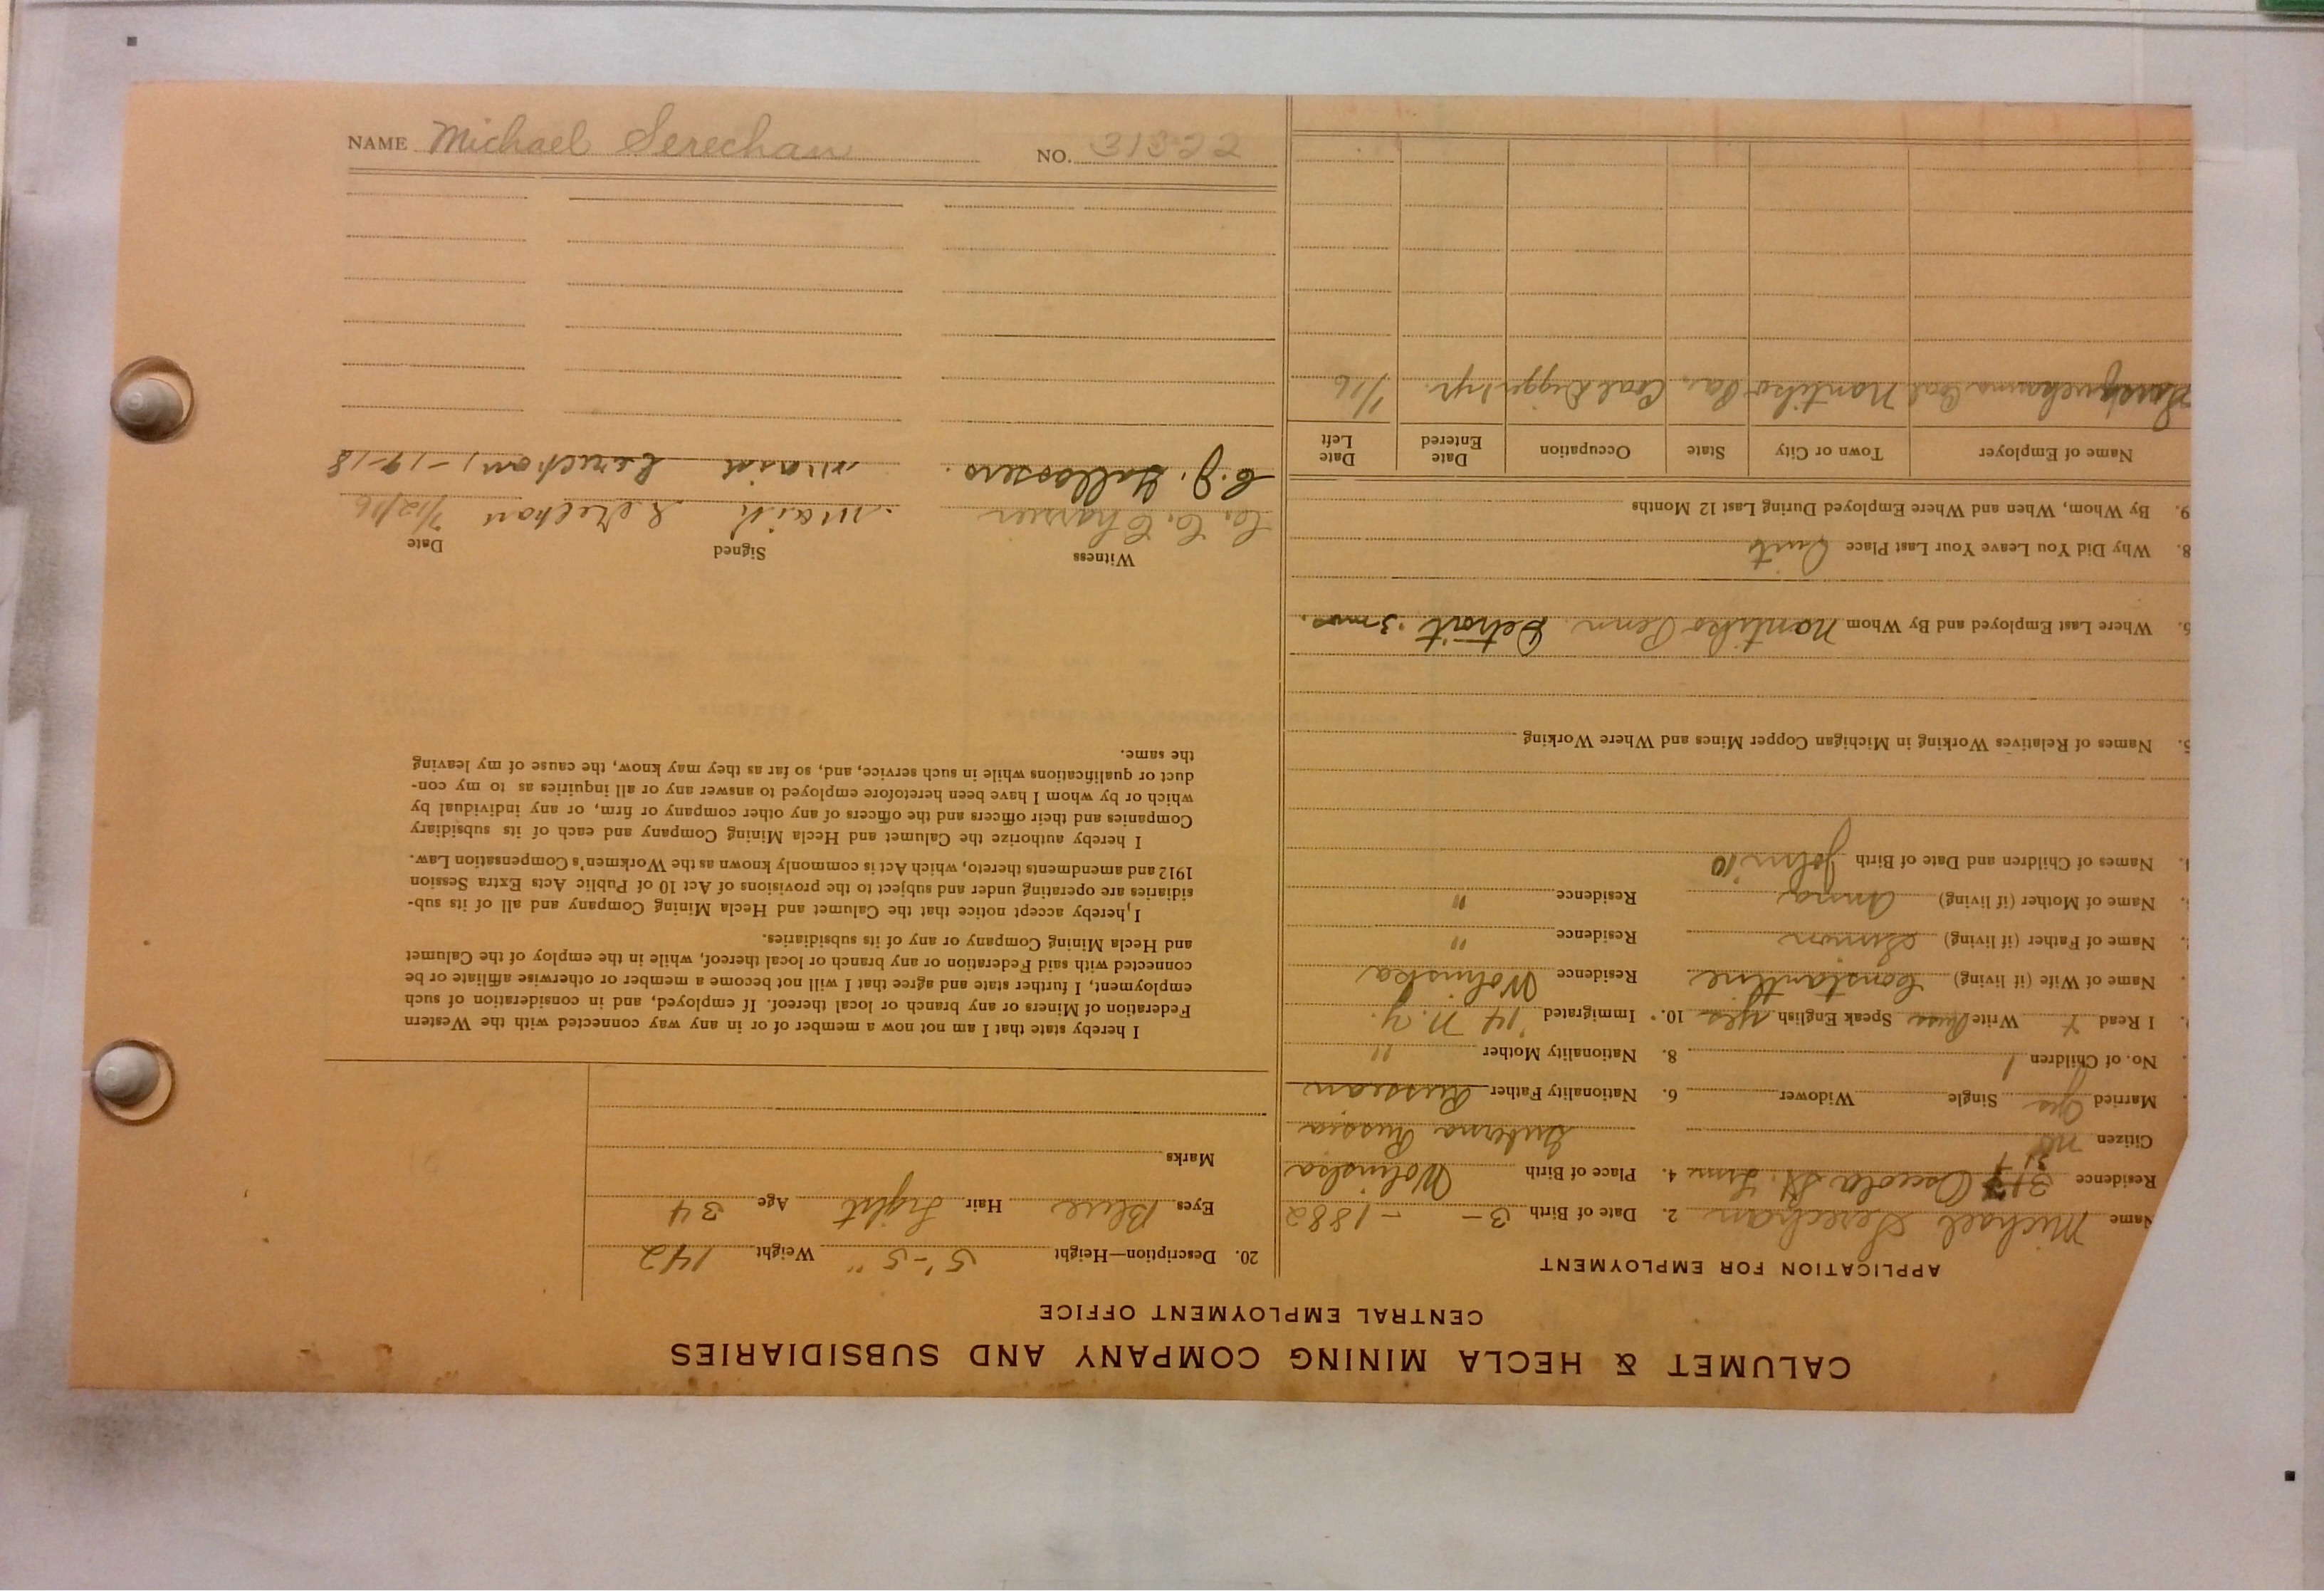 CALUMET & HECLA MINING COMPANY AND SUBSIDIARIES
CENTRAL EMPLOYMENT OFFICE
APPLICATION FOR EMPLOYMENT
Name Michael Serechan 2. Date of Birth 3- -1882
Residence 317 Osceola St. 4. Place of Birth Wolinska
317
Citizen no Guberna Russia
Married yes Single Widower 6. Nationality Father Russian
No. of Children 1 8. Nationality Mother "
I Read Y Write Russ Speak English yes 10. Immigrated '14 N.Y.
Name of Wife (if living) Constantine Residence Wolinska
Name of Father (if living) Simon Residence "
Name of Mother (if living) Anna Residence "
Names of Children and Date of Birth John 10
5. Names of Relatives Working in Michigan Copper Mines and Where Working
6. Where Last Employed and By Whom Nantiko Penn. Detroit 3 mos.
8. Why Did You Leave Your Last Place Quit
9. By Whom, When and Where Employed During Last 12 Months
Name of Employer Town or City State Occupation Date Entered Date Left
Susquehanna Coal Nantiko Pa. Coal Digger 1 yr. 1/16
20. Description—Height 5'-5" Weight 142
Eyes Blue Hair Light Age 34
Marks
I hereby state that I am not now a member of or in any way connected with the Western
Federation of Miners or any branch or local thereof. If employed, and in consideration of such
employment, I further state and agree that I will not become a member or otherwise affiliate or be
connected with said Federation or any branch or local thereof, while in the employ of the Calumet
and Hecla Mining Company or any of its subsidiaries.
I, hereby accept notice that the Calumet and Hecla Mining Company and all of its sub-
sidiaries are operating under and subject to the provisions of Act 10 of Public Acts Extra Session
1912 and amendments thereto, which Act is commonly known as the Workmen's Compensation Law.
I hereby authorize the Calumet and Hecla Mining Company and each of its subsidiary
Companies and their officers and the officers of any other company or firm, or any individual by
which or by whom I have been heretofore employed to answer any or all inquiries as to my con-
duct or qualifications while in such service, and, so far as they may know, the cause of my leaving
the same.
Witness Signed Date
C. C. Maik Serechan 7/12/16
C. J. Maik Serechan 1-19-18
NAME Michael Serechan NO. 31322